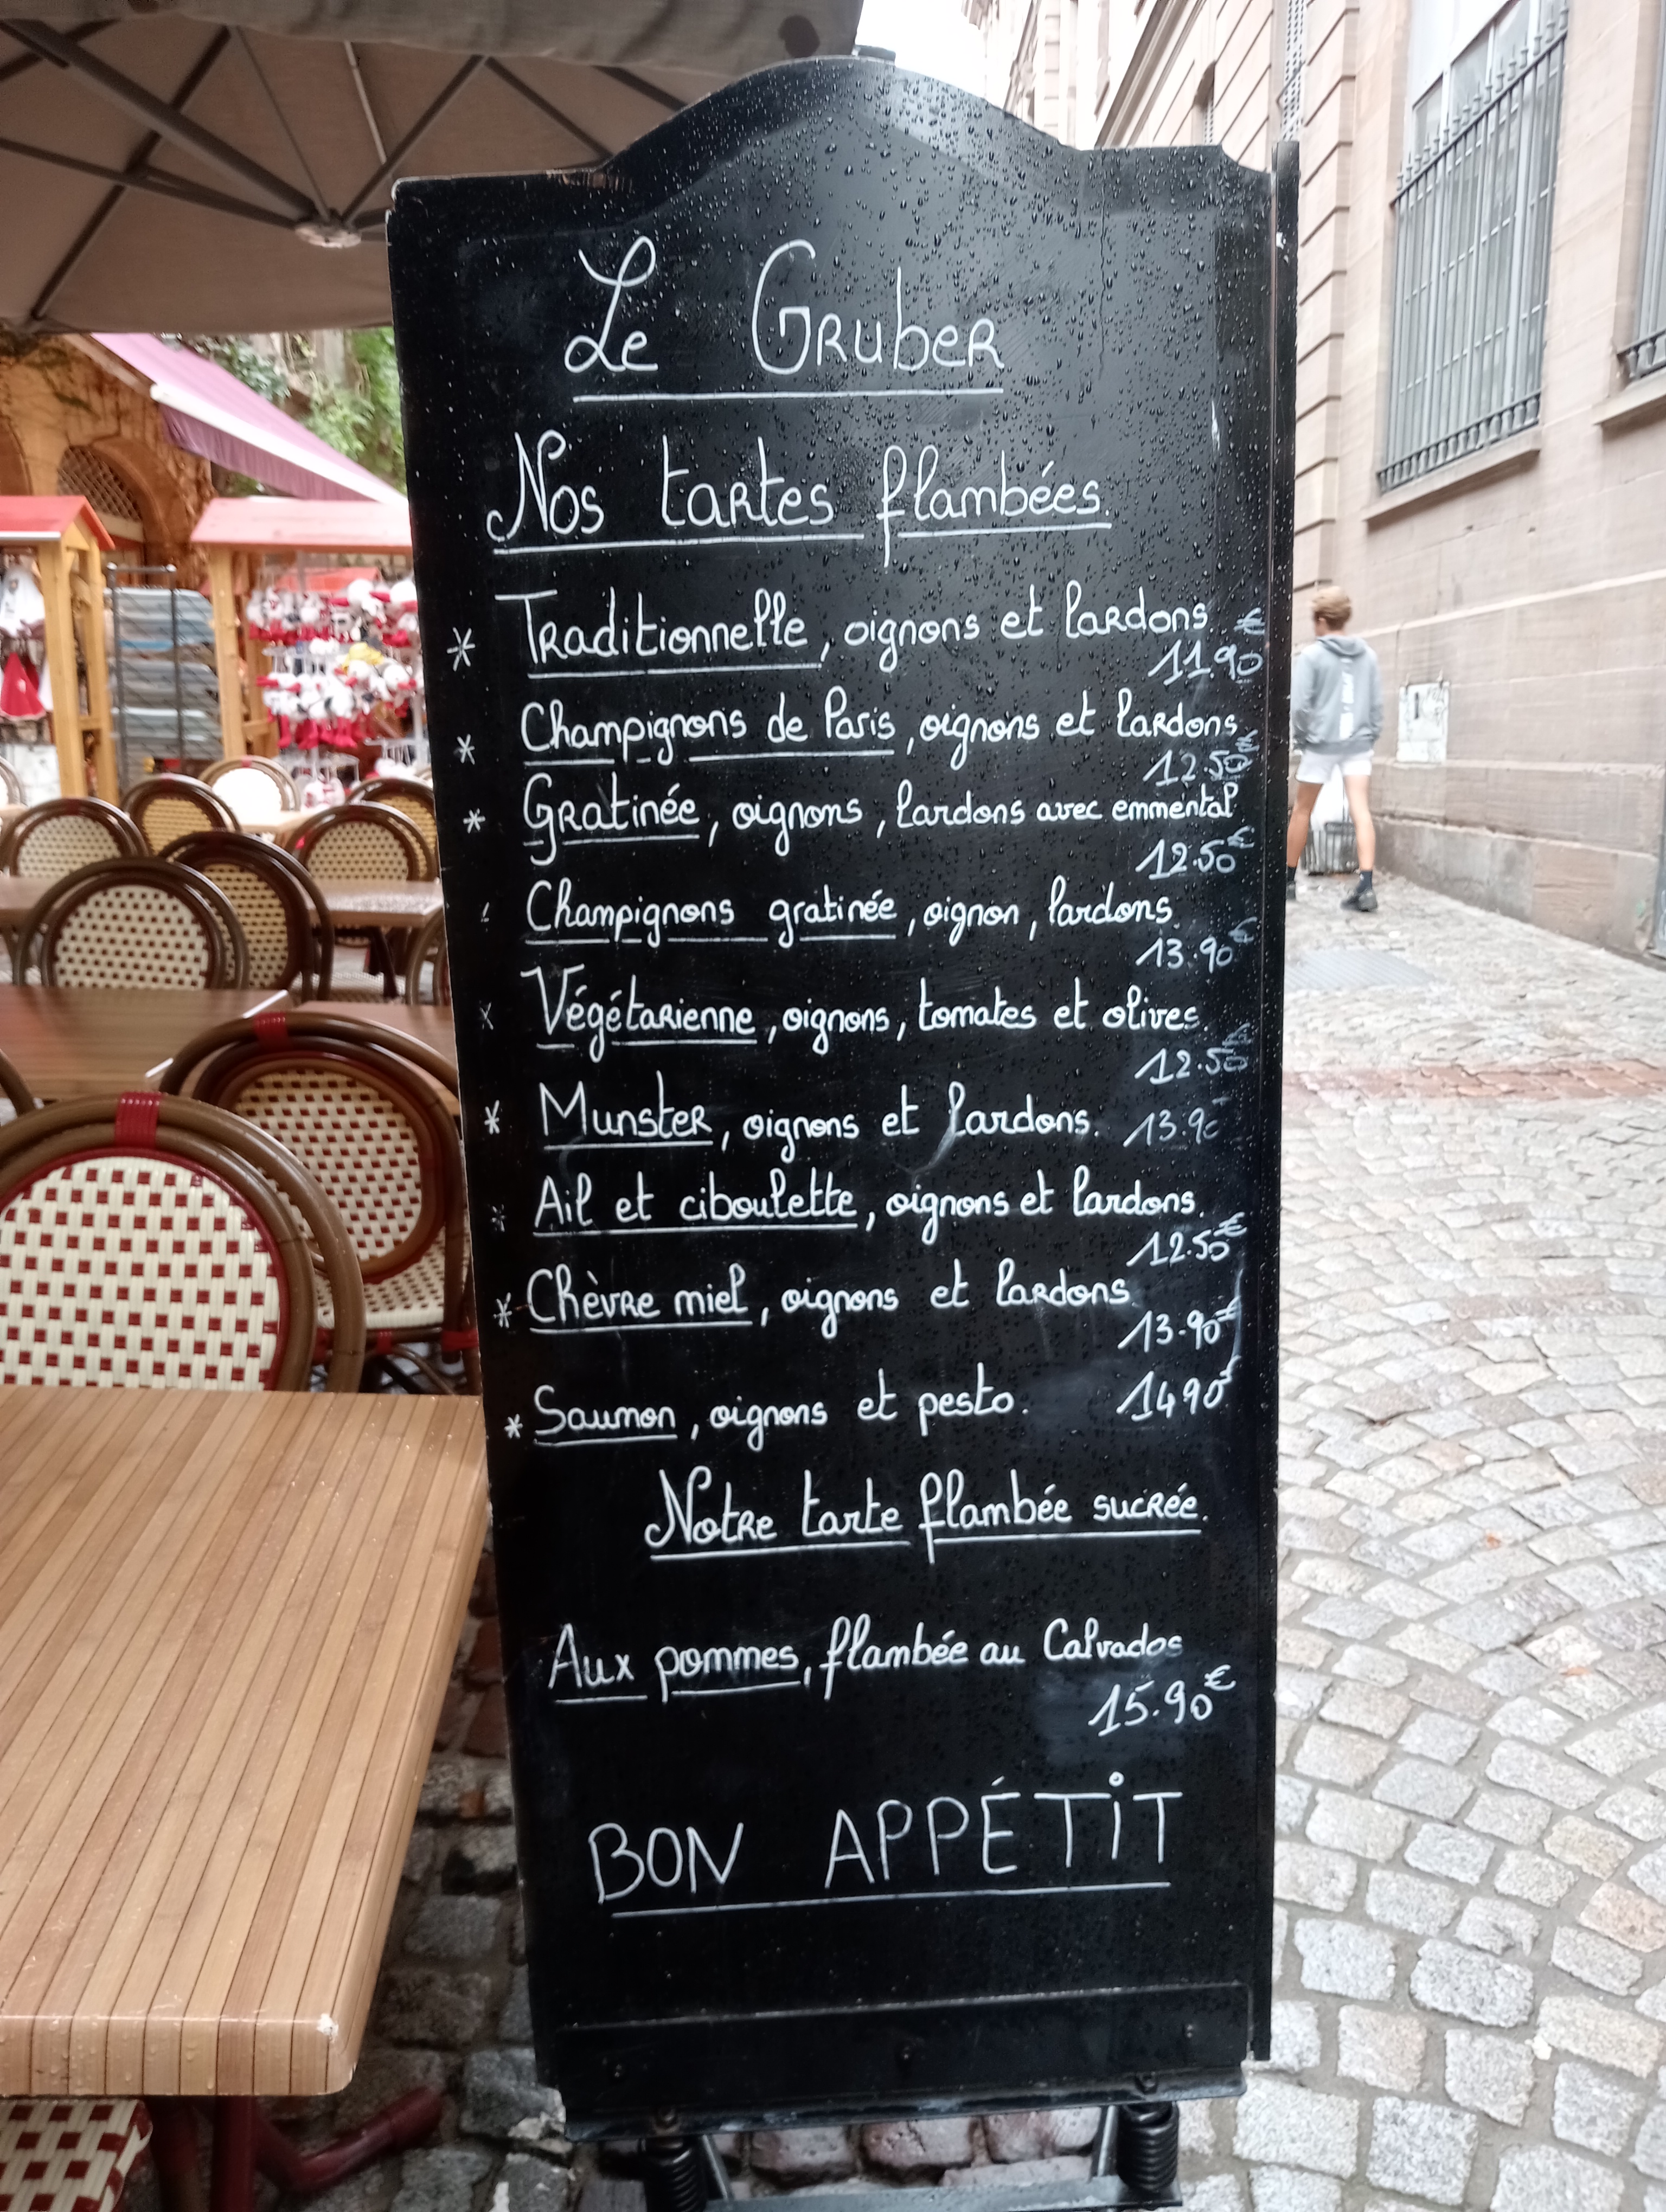 Le Gruber
Nos tartes flambées.
* Traditionnelle, oignons et lardons €
11.90
* Champignons de Paris, oignons et lardons
12.50
* Gratinée, oignons, lardons avec emmental
12.50€
Champignons gratinée, oignon, lardons
13.90€
* Végétarienne, oignons, tomates et olives.
12.50
* Munster, oignons et lardons. 13.90
* Ail et ciboulette, oignons et lardons.
12.50€
* Chèvre miel, oignons et lardons
13.90€
* Saumon, oignons et pesto. 14 90€
Notre tarte flambée sucrée.
Aux pommes, flambée au Calvados
15.90€
BON APPÉTiT